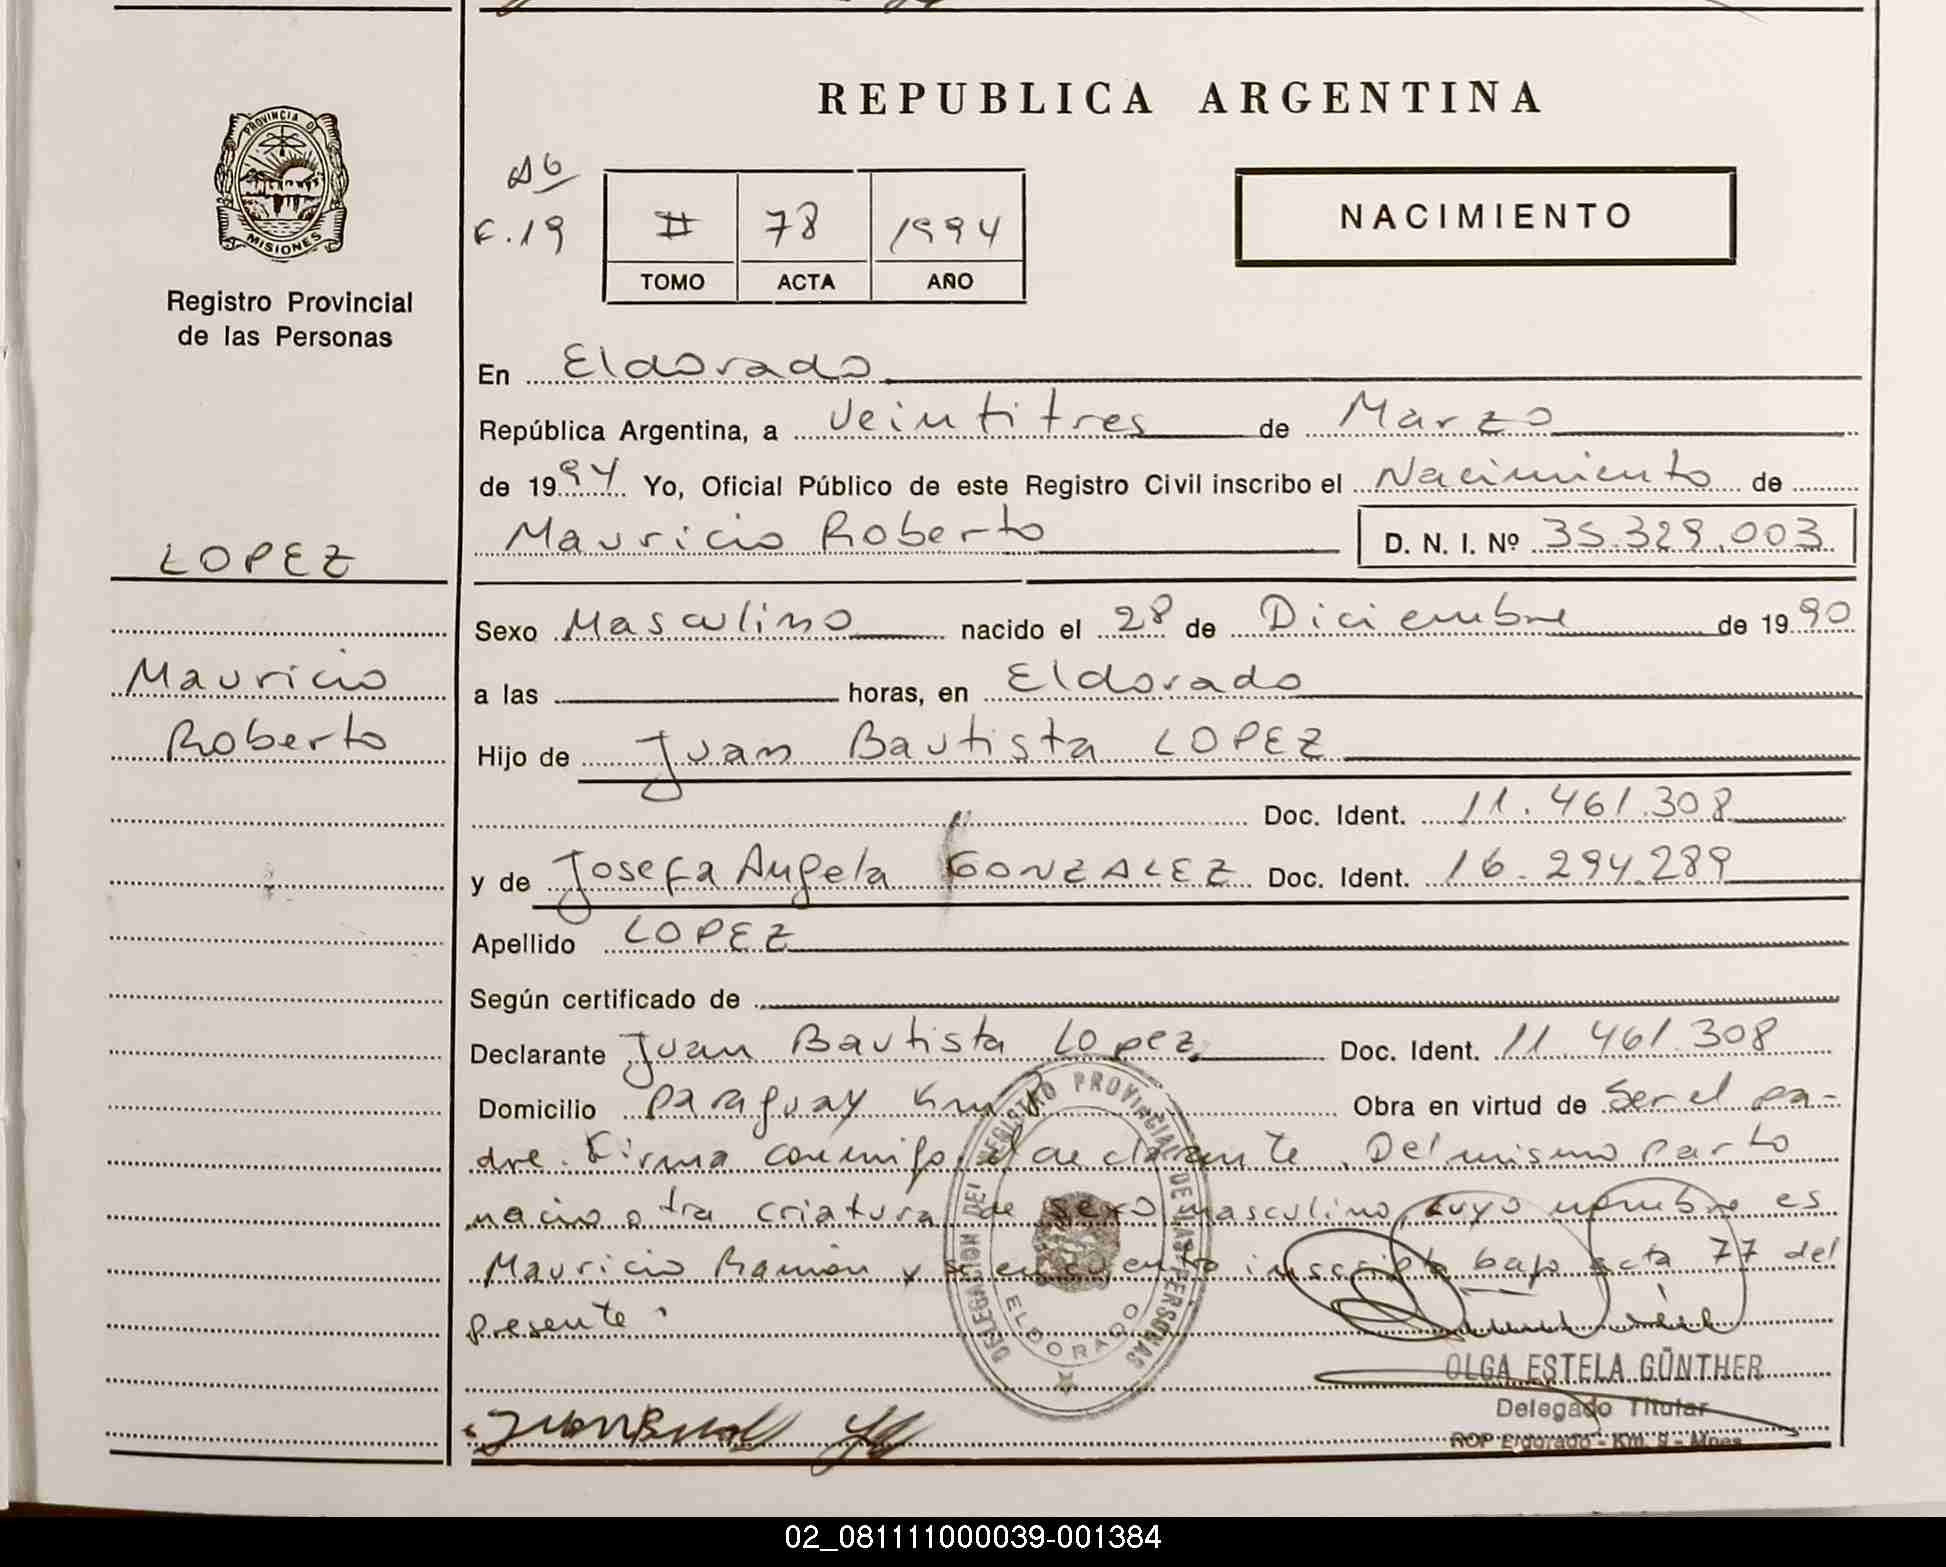 REPUBLICA ARGENTINA
PROVINCIA DE
MISIONES
Registro Provincial
de las Personas
F.19
II 78 1994
TOMO ACTA AÑO
NACIMIENTO
En Eldorado
República Argentina, a veintitres de Marzo
de 1994 Yo, Oficial Público de este Registro Civil inscribo el Nacimiento de
Mauricio Roberto D. N. I. Nº 35.329.003
LOPEZ
Mauricio
Roberto
Sexo Masculino nacido el 28 de Diciembre de 1990
a las horas, en Eldorado
Hijo de Juan Bautista LOPEZ
Doc. Ident. 11.461.308
y de Josefa Angela GONZALEZ Doc. Ident. 16.294.289
Apellido LOPEZ
Según certificado de
Declarante Juan Bautista Lopez Doc. Ident. 11.461.308
Domicilio Paraguay Km Obra en virtud de Ser el pa-
dre. Firma conmigo el declarante. Del mismo parto
nacio otra criatura de sexo masculino, cuyo nombre es
Mauricio Ramón y se encuentra inscripta bajo acta 77 del
presente.
DELEGACION DEL REGISTRO PROVINCIAL DE LAS PERSONAS
ELDORADO
OLGA ESTELA GÜNTHER
Delegado Titular
RDP Eldorado - Km. 9 - Mnes.
02_081111000039-001384